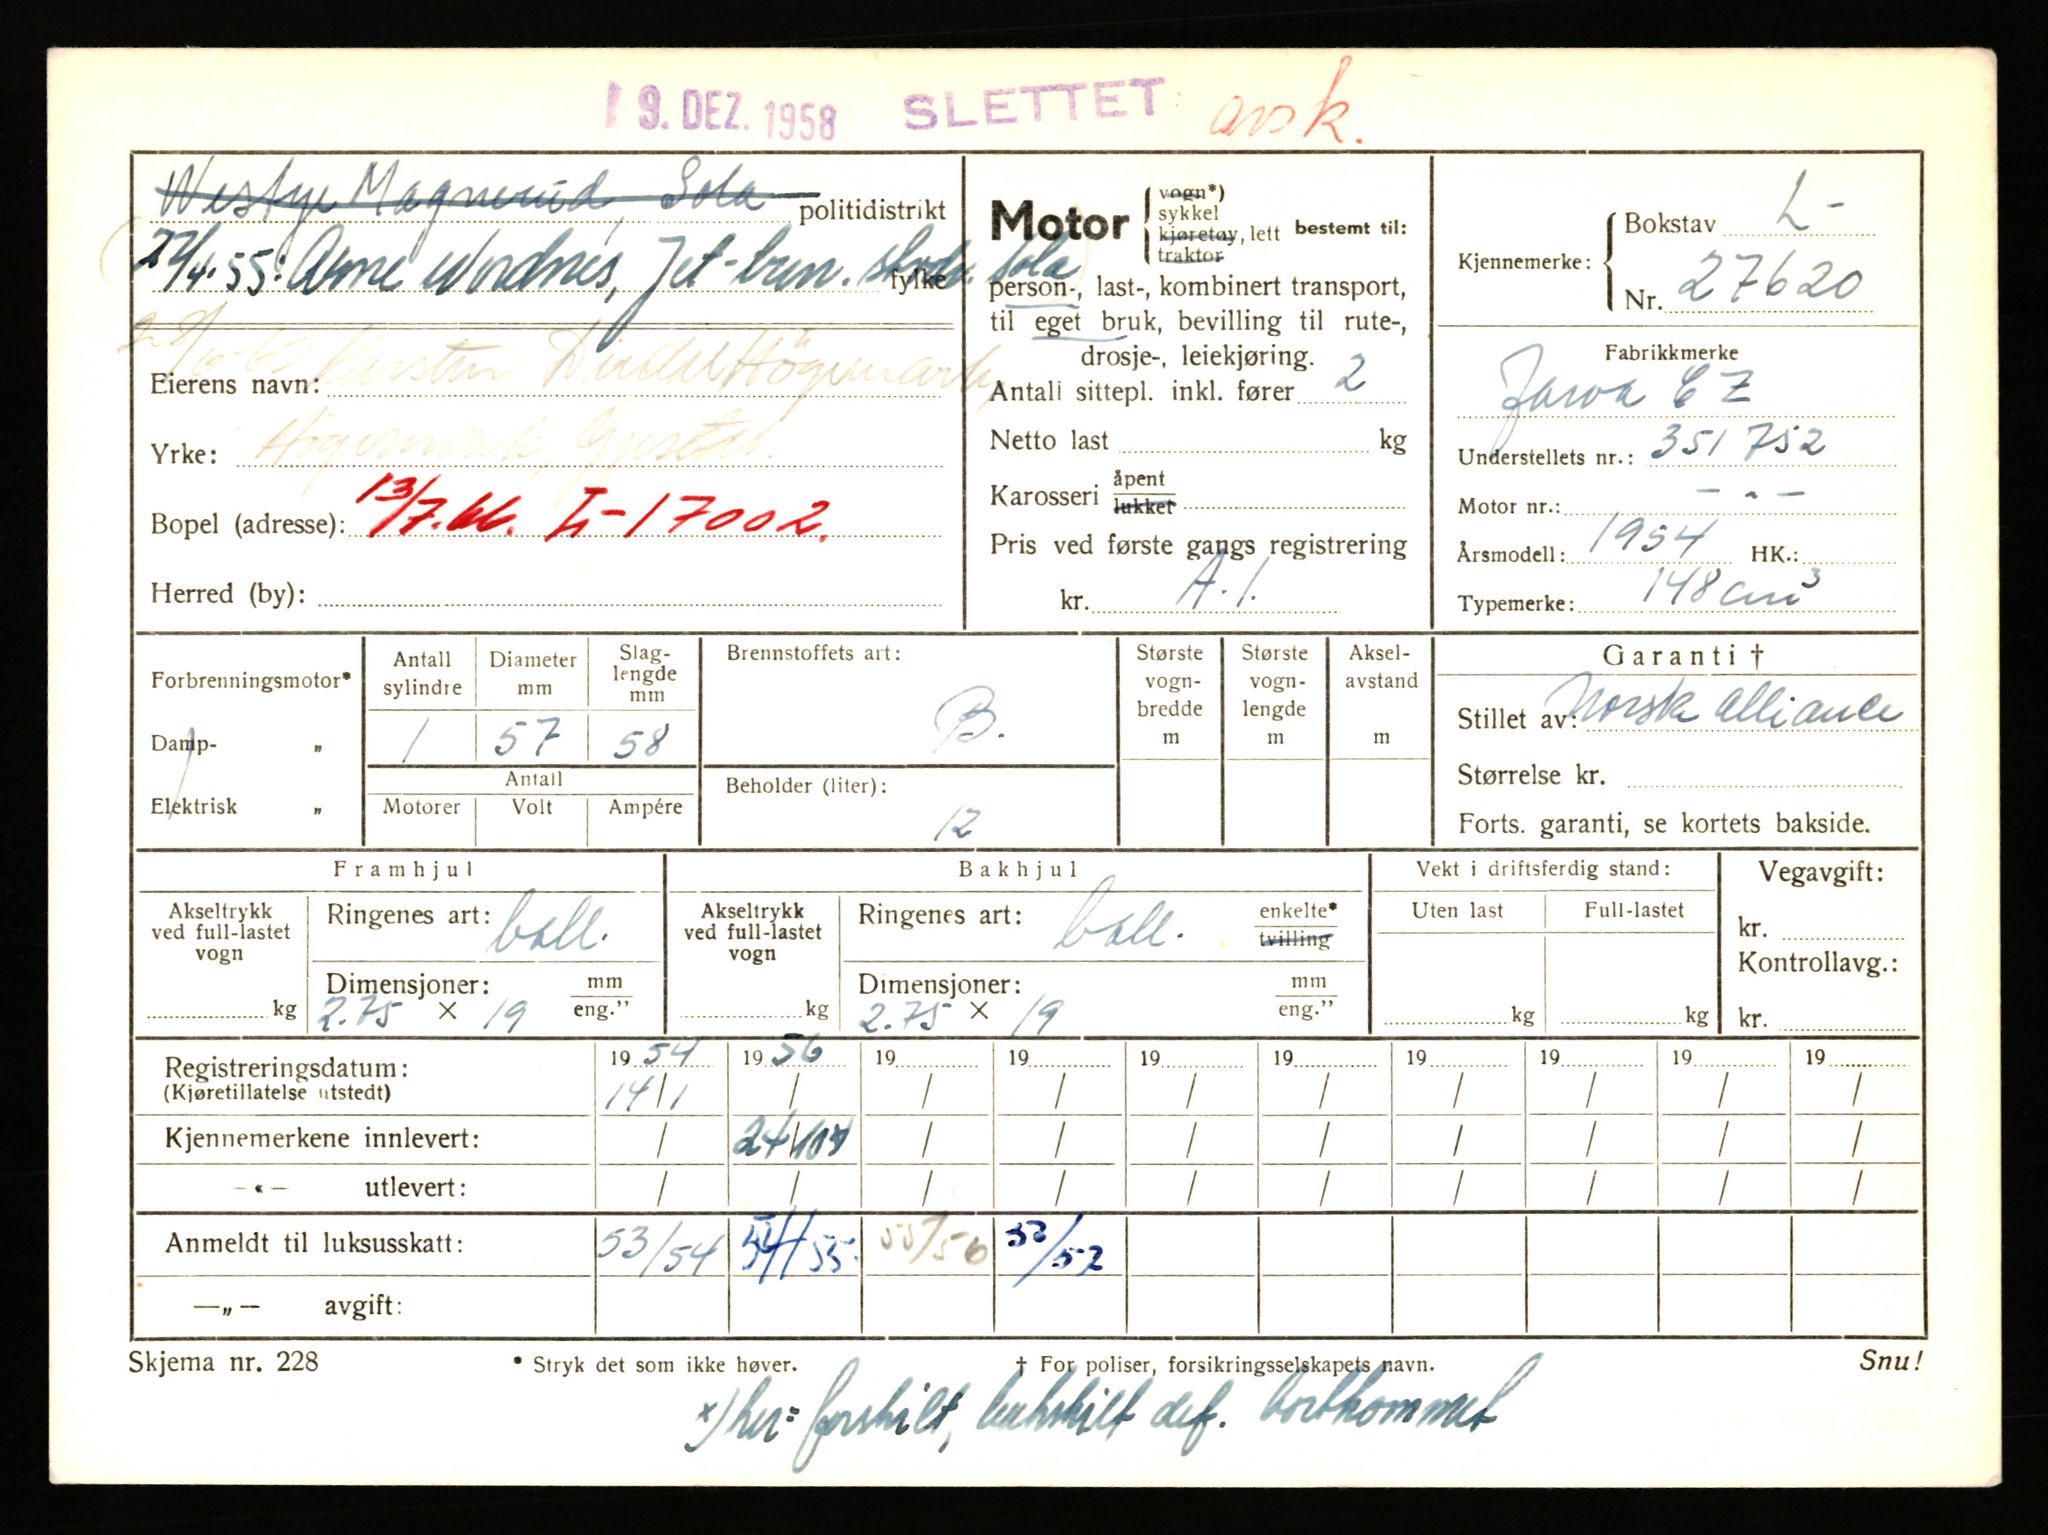 19. DEZ. 1958 SLETTET avsk.
Westye Magnerud, Sola politidistrikt
22/4.55: Arne Nordnes, Jet-tren. skvdr. Sola fylke
Eierens navn: Karsten Högemark,
Yrke: Högemark, Gjestal.
Bopel (adresse): 13/7.66. L-17002.
Herred (by):
Motor vogn*) sykkel kjøretøy, lett traktor bestemt til:
person-, last-, kombinert transport,
til eget bruk, bevilling til rute-,
drosje-, leiekjøring.
Antall sittepl. inkl. fører 2
Netto last kg
Karosseri åpent lukket
Pris ved første gangs registrering
kr. A.1.
Kjennemerke: Bokstav L-
Nr. 27620
Fabrikkmerke
Jawa CZ
Understellets nr.: 351752
Motor nr.: - " -
Årsmodell: 1954 HK.:
Typemerke: 148 cm³
Forbrenningsmotor*
Damp- "
Elektrisk "
Antall sylindre Diameter mm Slag-lengde mm
1 57 58
Antall
Motorer Volt Ampére
Brennstoffets art:
B.
Beholder (liter):
12
Største vogn-bredde m
Største vogn-lengde m
Aksel-avstand m
Garanti †
Stillet av: Norsk Alliance
Størrelse kr.
Forts. garanti, se kortets bakside.
Framhjul
Akseltrykk ved full-lastet vogn kg
Ringenes art: ball.
Dimensjoner: mm eng."
2.75 × 19
Bakhjul
Akseltrykk ved full-lastet vogn kg
Ringenes art: ball. enkelte* tvilling
Dimensjoner: mm eng."
2.75 × 19
Vekt i driftsferdig stand:
Uten last Full-lastet
kg kg
Vegavgift:
kr.
Kontrollavg.:
kr.
Registreringsdatum: 19 54 19 56 19 19 19 19 19 19 19 19
(Kjøretillatelse utstedt) 14/1 / / / / / / / / /
Kjennemerkene innlevert: / 24/10 / / / / / / / /
-«- utlevert: / / / / / / / / / /
Anmeldt til luksusskatt: 53/54 54/55 55/56
—„— avgift:
Skjema nr. 228 * Stryk det som ikke høver. † For poliser, forsikringsselskapets navn. Snu!
x) her= forskilt, bakskilt def. bortkommet